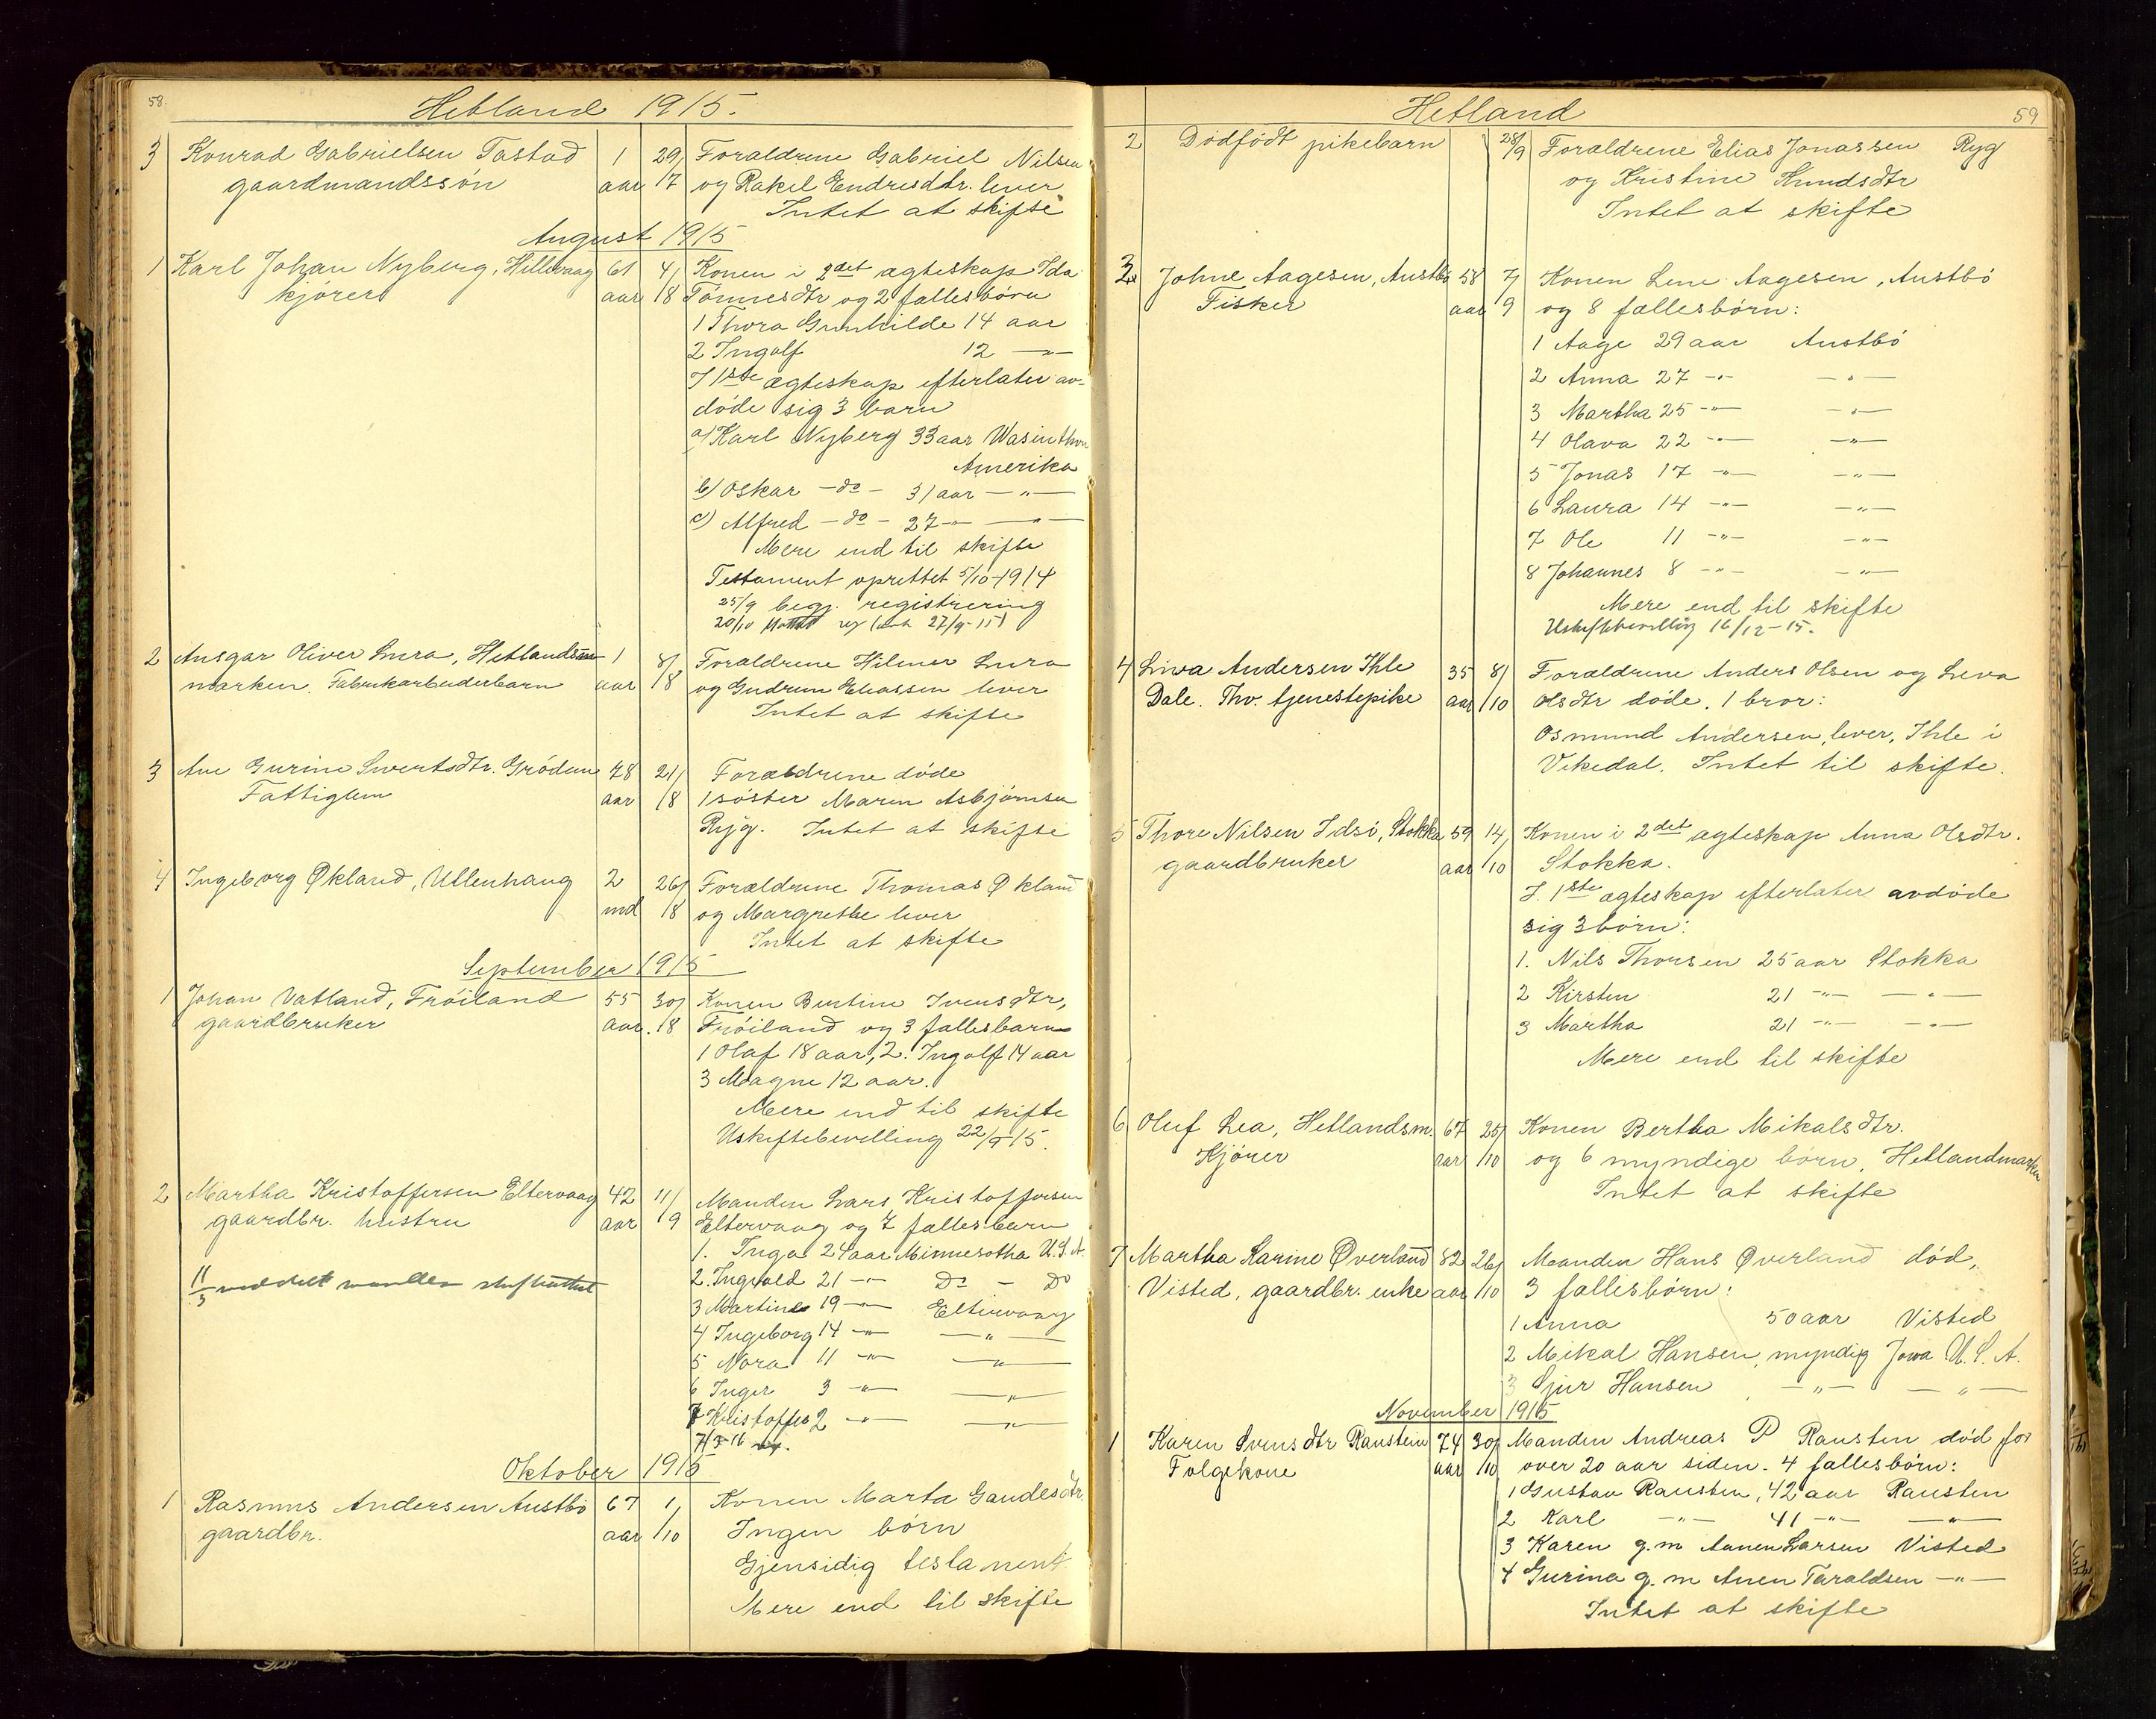 58.
Hetland 1915.
3 Konrad Gabrielsen Tastad 1 29/ Forældrene Gabriel Nilsen
gaardmandssøn aar 7 og Rakel Endresdtr. lever
Intet at skifte
August 1915
1 Karl Johan Nyberg, Hillevaag 61 4/ Konen i 2det ægteskap Ida
kjører aar 8 Tønnesdtr og 2 fællesbørn
1 Thora Gunhilde 14 aar
2 Ingolf 12 -"-
I 1ste ægteskap efterlater av-
døde sig 3 barn
a) Karl Nyberg 33 aar Wasinthon
Amerika
b) Oskar - do - 31 aar -"-
c) Alfred - do - 27 -"- -"-
Mere end til skifte
Testament oprettet 5/10-1914
25/9 begj. registrering
20/10 27/9-15)
2 Ansgar Oliver Lura, Hetlands- 1 8/ Forældrene Hilmer Lura
marken. Fabrikarbeiderbarn aar 8 og Gudrun Eliassen lever
Intet at skifte
3 Ane Gurine Sivertsdtr. Grødem 78 21/ Forældrene døde
Fattiglem aar 8 1 søster Maren Asbjørnsen
Ryg. Intet at skifte
4 Ingeborg Økland, Ullenhaug 2 26/ Forældrene Thomas Økland
md 8 og Margrethe lever
Intet at skifte
September 1915
1 Johan Vatland, Frøiland 55 30/ Konen Bertine Ivensdtr,
gaardbruker aar. 8 Frøiland og 3 fællesbarn
1 Olaf 18 aar, 2. Ingolf 14 aar
3 Magne 12 aar.
Mere end til skifte
Uskiftebevilling 22/9 15.
2 Martha Kristoffersen Eltervaag 42 11/ Manden Lars Kristoffersen
gaardbr. hustru aar 9 Eltervaag og 7 fællesbarn
1. Inga 24 aar Minnesotha U.S.A.
11/3 meddelt manden
2. Ingvald 21 -"- Do - Do
3 Martine 19 -"- Eltervaag
4 Ingeborg 14 -"- -"-
5 Nora 11 -"- -"-
6 Inger 3 -"- -"-
7 Kristoffer 2 -"- -"-
7/3-16
Oktober 1915
1 Rasmus Andersen Austbø 67 1/ Konen Marta Gaudesdtr.
gaardbr. aar 10 Ingen børn
Gjensidig testament.
Mere end til skifte
Hetland
59
2 Dødfødt pikebarn 28/9 Forældrene Elias Jonassen Ryg
og Kristine Knudsdtr
Intet at skifte
3 Johne Aagesen, Austbø 58 7/ Konen Lene Aagesen, Austbø
Fisker aar 9 og 8 fællesbørn:
1 Aage 29 aar Austbø
2 Anna 27 -"- -"-
3 Martha 25 -"- -"-
4 Olava 22 -"- -"-
5 Jonas 17 -"- -"-
6 Laura 14 -"- -"-
7 Ole 11 -"- -"-
8 Johannes 8 -"- -"-
Mere end til skifte
Uskiftebevilling 16/12-15.
4 Liva Andersen Ihle 35 8/ Forældrene Anders Olsen og Leva
Dale. Thv. tjenestepike aar 10 Olsdtr døde. 1 bror:
Osmund Andersen, lever, Ihle i
Vikedal. Intet til skifte.
5 Thore Nilsen Idsø, Stokka 59 14/ Konen i 2det ægteskap Anna Olsdtr.
gaardbruker aar 10 Stokka.
I. 1ste ægteskap efterlater avdøde
sig 3 børn:
1. Nils Thorsen 25 aar Stokka
2 Kirsten 21 -"- -"-
3 Martha 21 -"- -"-
Mere end til skifte
6 Oluf Lea, Hetlandsm. 67 25/ Konen Bertha Mikalsdtr.
Kjører aar 10 og 6 myndige børn, Hetlandmarken
Intet at skifte
7 Martha Karine Øverland 82 26/ Manden Hans Øverland død,
Visted, gaardbr. enke aar 10 3 fællesbørn:
1 Anna 50 aar Visted
2 Mikal Hansen, myndig Jowa U.S.A.
3 Sjur Hansen, -"- -"-
November 1915
1 Karen Svensdtr Raustein 74 30/ Manden Andreas P Rausten død for
Følgekone aar 10 over 20 aar siden. 4 fællesbørn:
1 Gustav Rausten, 42 aar Rausten
2 Karl -"- 41 -"- -"-
3 Karen g.m Aanen Larsen Visted
4 Gurina g.m Anen Taraldsen -"-
Intet at skifte